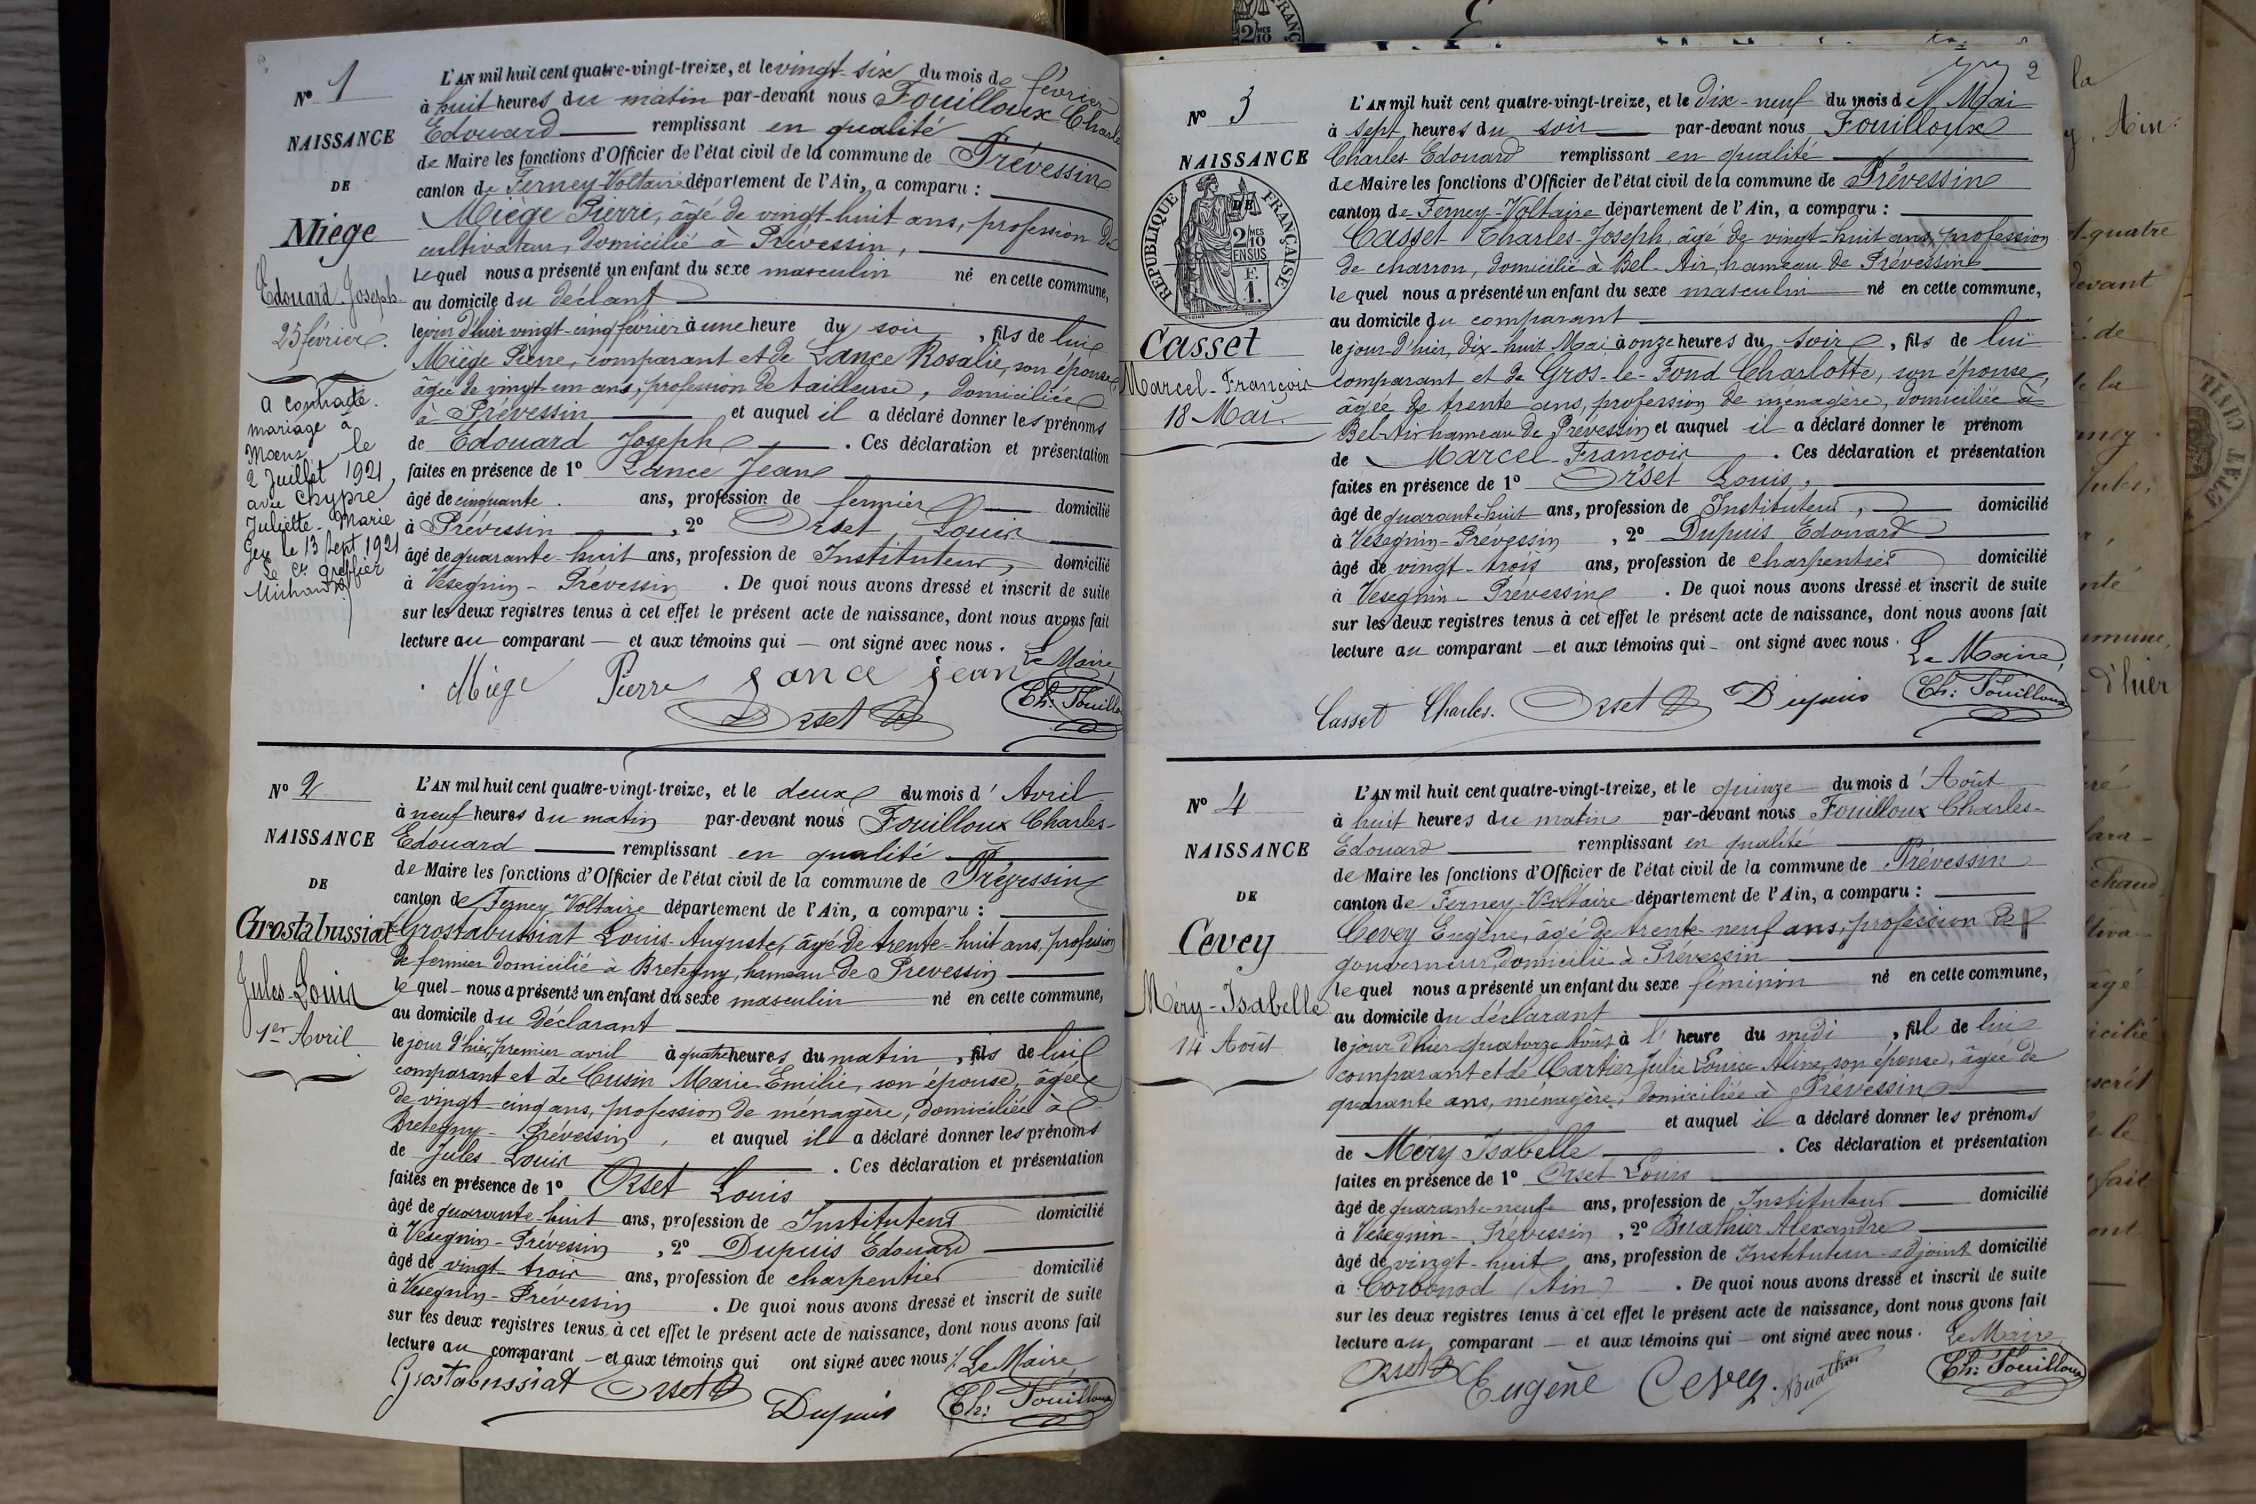 Nº 1
NAISSANCE
DE
Miège
Edouard Joseph
25 février
a contracté
mariage à
Moens le
2 Juillet 1921,
avec Chypre
Juliette-Marie
Gex le 13 Sept 1921
Le Cis Greffier
L'AN mil huit cent quatre-vingt-treize, et le vingt-six du mois de février
à huit heures du matin par-devant nous Fouilloux Charles
Edouard remplissant en qualité
de Maire les fonctions d'Officier de l'état civil de la commune de Prévessin
canton de Ferney-Voltaire département de l'Ain, a comparu :
Miège Pierre, âgé de vingt-huit ans, profession de
cultivateur, domicilié à Prévessin,
lequel nous a présenté un enfant du sexe masculin né en cette commune,
au domicile du déclant
le jour d'hier vingt-cinq février à une heure du soir, fils de lui
Miège Pierre, comparant et de Lance Rosalie, son épouse
âgée de vingt un ans, profession de tailleuse, domiciliée
à Prévessin et auquel il a déclaré donner les prénoms
de Edouard Joseph. Ces déclaration et présentation
faites en présence de 1º Lance Jean
âgé de cinquante ans, profession de fermier domicilié
à Prévessin, 2º Orset Louis
âgé de quarante-huit ans, profession de Instituteur, domicilié
à Vesegnin-Prévessin. De quoi nous avons dressé et inscrit de suite
sur les deux registres tenus à cet effet le présent acte de naissance, dont nous avons fait
lecture au comparant — et aux témoins qui — ont signé avec nous.
Le Maire,
Miège Pierre Lance jean
Orset Ch: Fouilloux
Nº 2
NAISSANCE
DE
Grostabussiat
Jules-Louis
1er Avril
L'AN mil huit cent quatre-vingt-treize, et le deux du mois d'Avril
à neuf heures du matin par-devant nous Fouilloux Charles-
Edouard remplissant en qualité
de Maire les fonctions d'Officier de l'état civil de la commune de Prévessin
canton de Ferney Voltaire département de l'Ain, a comparu :
Grostabussiat Louis-Auguste, âgé de trente-huit ans, profession
de fermier domicilié à Bretegny, hameau de Prévessin
le quel — nous a présenté un enfant du sexe masculin né en cette commune,
au domicile du déclarant
le jour d'hier, premier avril à quatre heures du matin, fils de lui
comparant et de Cusin Marie-Emilie, son épouse, âgée
de vingt-cinq ans, profession de ménagère, domiciliée à
Bretegny-Prévessin, et auquel il a déclaré donner les prénoms
de Jules-Louis. Ces déclaration et présentation
faites en présence de 1º Orset Louis
âgé de quarante-huit ans, profession de Instituteur domicilié
à Vesegnin-Prévessin, 2º Dupuis Edouard
âgé de vingt-trois ans, profession de charpentier domicilié
à Vesegnin-Prévessin. De quoi nous avons dressé et inscrit de suite
sur les deux registres tenus à cet effet le présent acte de naissance, dont nous avons fait
lecture au comparant — et aux témoins qui ont signé avec nous ./. Le Maire,
Grostabussiat Orset
Dupuis Ch: Fouilloux
2
Nº 3
NAISSANCE
DE
REPUBLIQUE FRANÇAISE
2 MES
10
EN SUS
F.
1.
Casset
Marcel-François
18 Mai.
L'AN mil huit cent quatre-vingt-treize, et le dix-neuf du mois de Mai
à sept heures du soir par-devant nous Fouilloux
Charles-Edouard remplissant en qualité
de Maire les fonctions d'Officier de l'état civil de la commune de Prévessin
canton de Ferney-Voltaire département de l'Ain, a comparu :
Casset Charles-Joseph, âgé de vingt-huit ans, profession
de charron, domicilié à Bel-Air, hameau de Prévessin
le quel nous a présenté un enfant du sexe masculin né en cette commune,
au domicile du comparant
le jour d'hier, dix-huit Mai à onze heures du soir, fils de lui
comparant et de Gros-le-Fond Charlotte, son épouse,
âgée de trente ans, profession de ménagère, domiciliée à
Bel-Air hameau de Prévessin et auquel il a déclaré donner le prénom
de Marcel-François. Ces déclaration et présentation
faites en présence de 1º Orset Louis,
âgé de quarante-huit ans, profession de Instituteur, domicilié
à Vesegnin-Prévessin, 2º Dupuis Edouard
âgé de vingt-trois ans, profession de charpentier domicilié
à Vesegnin-Prévessin. De quoi nous avons dressé et inscrit de suite
sur les deux registres tenus à cet effet le présent acte de naissance, dont nous avons fait
lecture au comparant — et aux témoins qui — ont signé avec nous.
Le Maire,
Casset Charles. Orset Dupuis Ch: Fouilloux
Nº 4
NAISSANCE
DE
Cevey
Méry-Isabelle
14 Août
L'AN mil huit cent quatre-vingt-treize, et le quinze du mois d'Août
à huit heures du matin par-devant nous Fouilloux Charles-
Edouard remplissant en qualité
de Maire les fonctions d'Officier de l'état civil de la commune de Prévessin
canton de Ferney-Voltaire département de l'Ain, a comparu :
Cevey Eugène, âgé de trente-neuf ans, profession de
gouverneur, domicilié à Prévessin
le quel nous a présenté un enfant du sexe féminin né en cette commune,
au domicile du déclarant
le jour d'hier quatorze août à l'heure du midi, fil de lui
comparant et de Cartier Julie Louise Aline, son épouse, âgée de
quarante ans, ménagère, domiciliée à Prévessin
et auquel il a déclaré donner les prénoms
de Méry Isabelle. Ces déclaration et présentation
faites en présence de 1º Orset Louis
âgé de quarante-neuf ans, profession de Instituteur domicilié
à Vesegnin-Prévessin, 2º Buathier Alexandre
âgé de vingt-huit ans, profession de Instituteur-adjoint domicilié
à Corbonod (Ain). De quoi nous avons dressé et inscrit de suite
sur les deux registres tenus à cet effet le présent acte de naissance, dont nous avons fait
lecture au comparant — et aux témoins qui — ont signé avec nous.
Le Maire,
Orset Eugène Cevey. Buathier Ch: Fouilloux